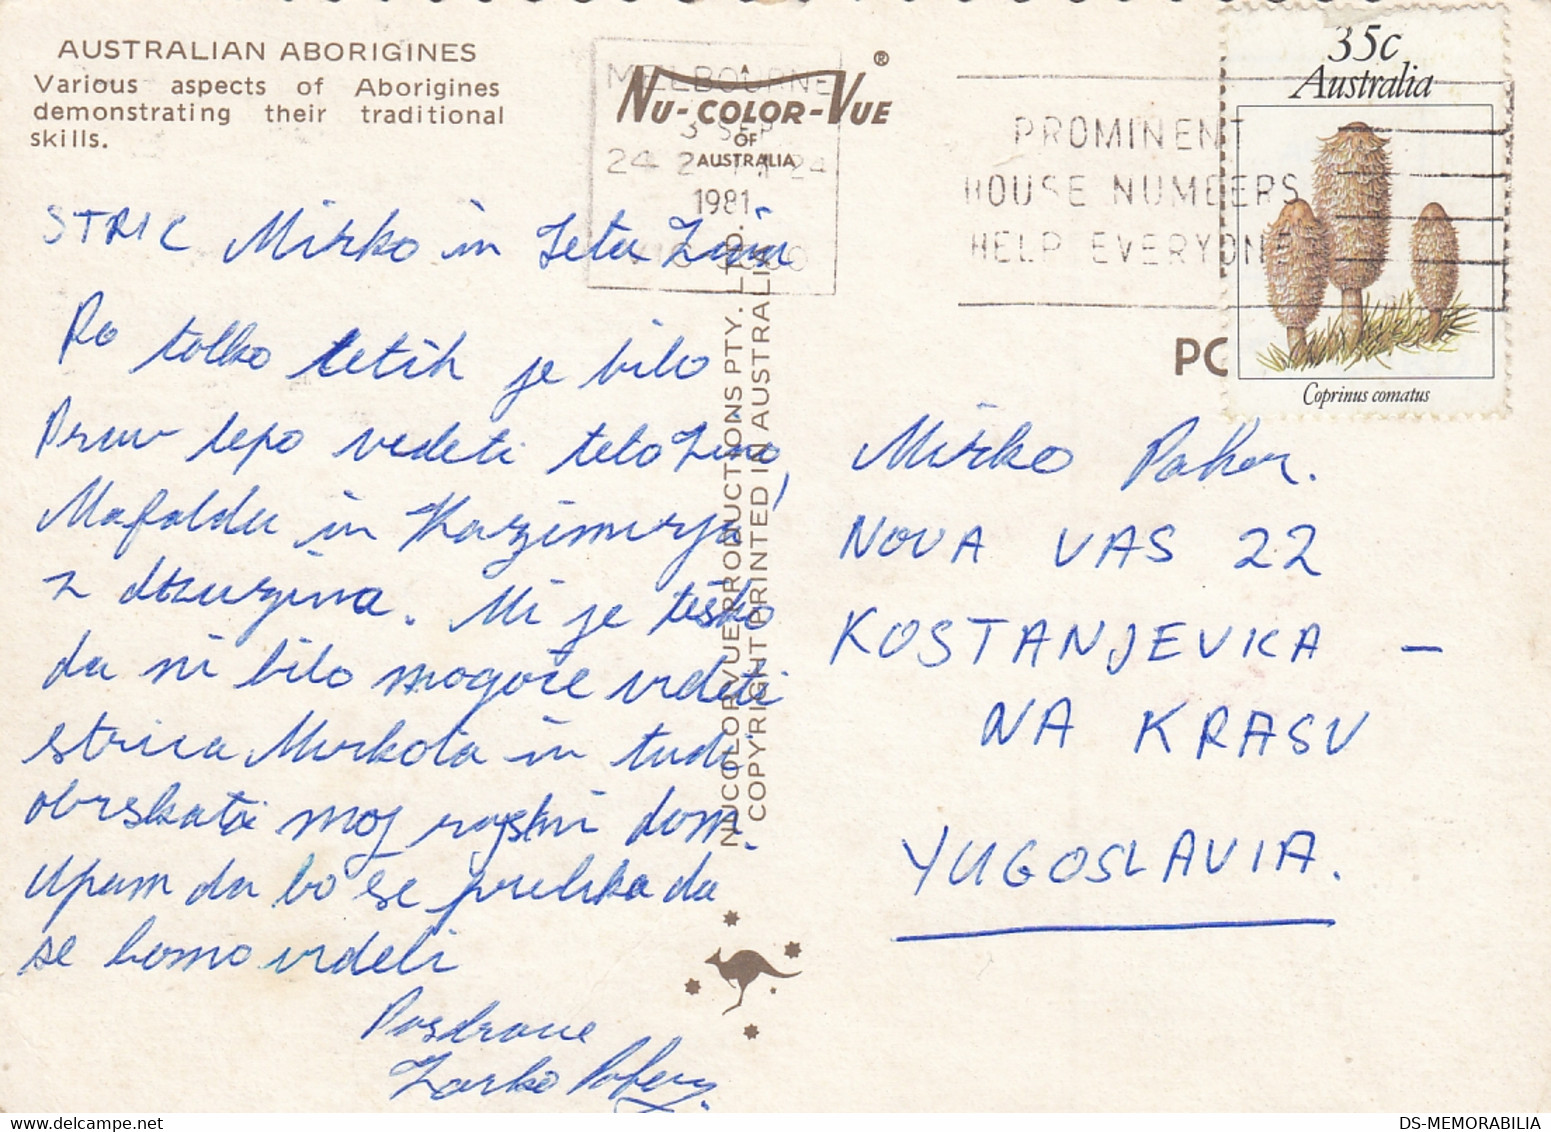 AUSTRALIAN ABORIGINES
Various aspects of Aborigines
demonstrating their traditional
skills.
NU-COLOR-VUE ®
OF
AUSTRALIA
MELBOURNE
3 SEP
1981
PROMINENT
HOUSE NUMBERS
HELP EVERYONE
35c
Australia
Coprinus comatus
PO
STRIC Mirko in Teta Zina
Po tolko letih je bilo
Prav lepo vedeti teto Zino,
Mafaldu in Kazimirja
z druzina. Mi je teško
da ni bilo mogoče videti
strica Mirkota in tudi
obiskati moj rojstni dom.
Upam da bo se prilika da
se bomo videli
Pozdrave
Zarko Pahor.
NUCOLORVUE PRODUCTIONS PTY. LTD.
COPYRIGHT PRINTED IN AUSTRALIA
Mirko Pahor.
NOVA VAS 22
KOSTANJEVICA –
NA KRASU
YUGOSLAVIA.
DS-MEMORABILIA